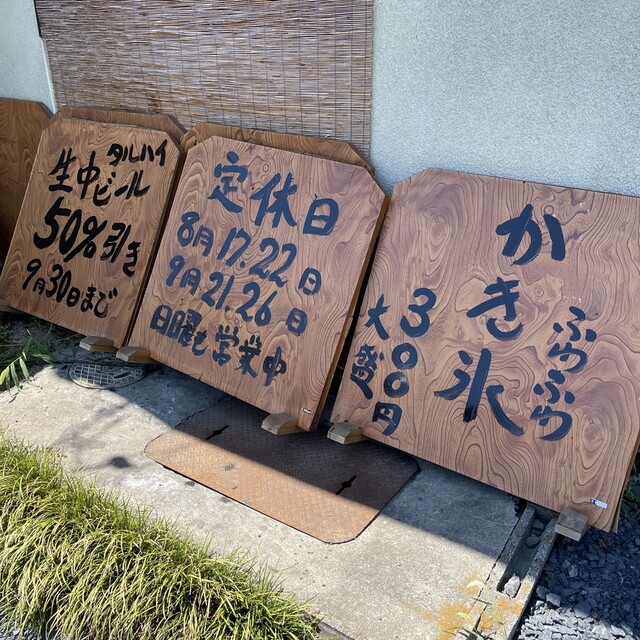 タルハイ
生中ビール
50%引き
9月30日まで
定休日
8月17.22日
9月21.26日
日曜も営業中
かき氷
ふわふわ
300円
大盛